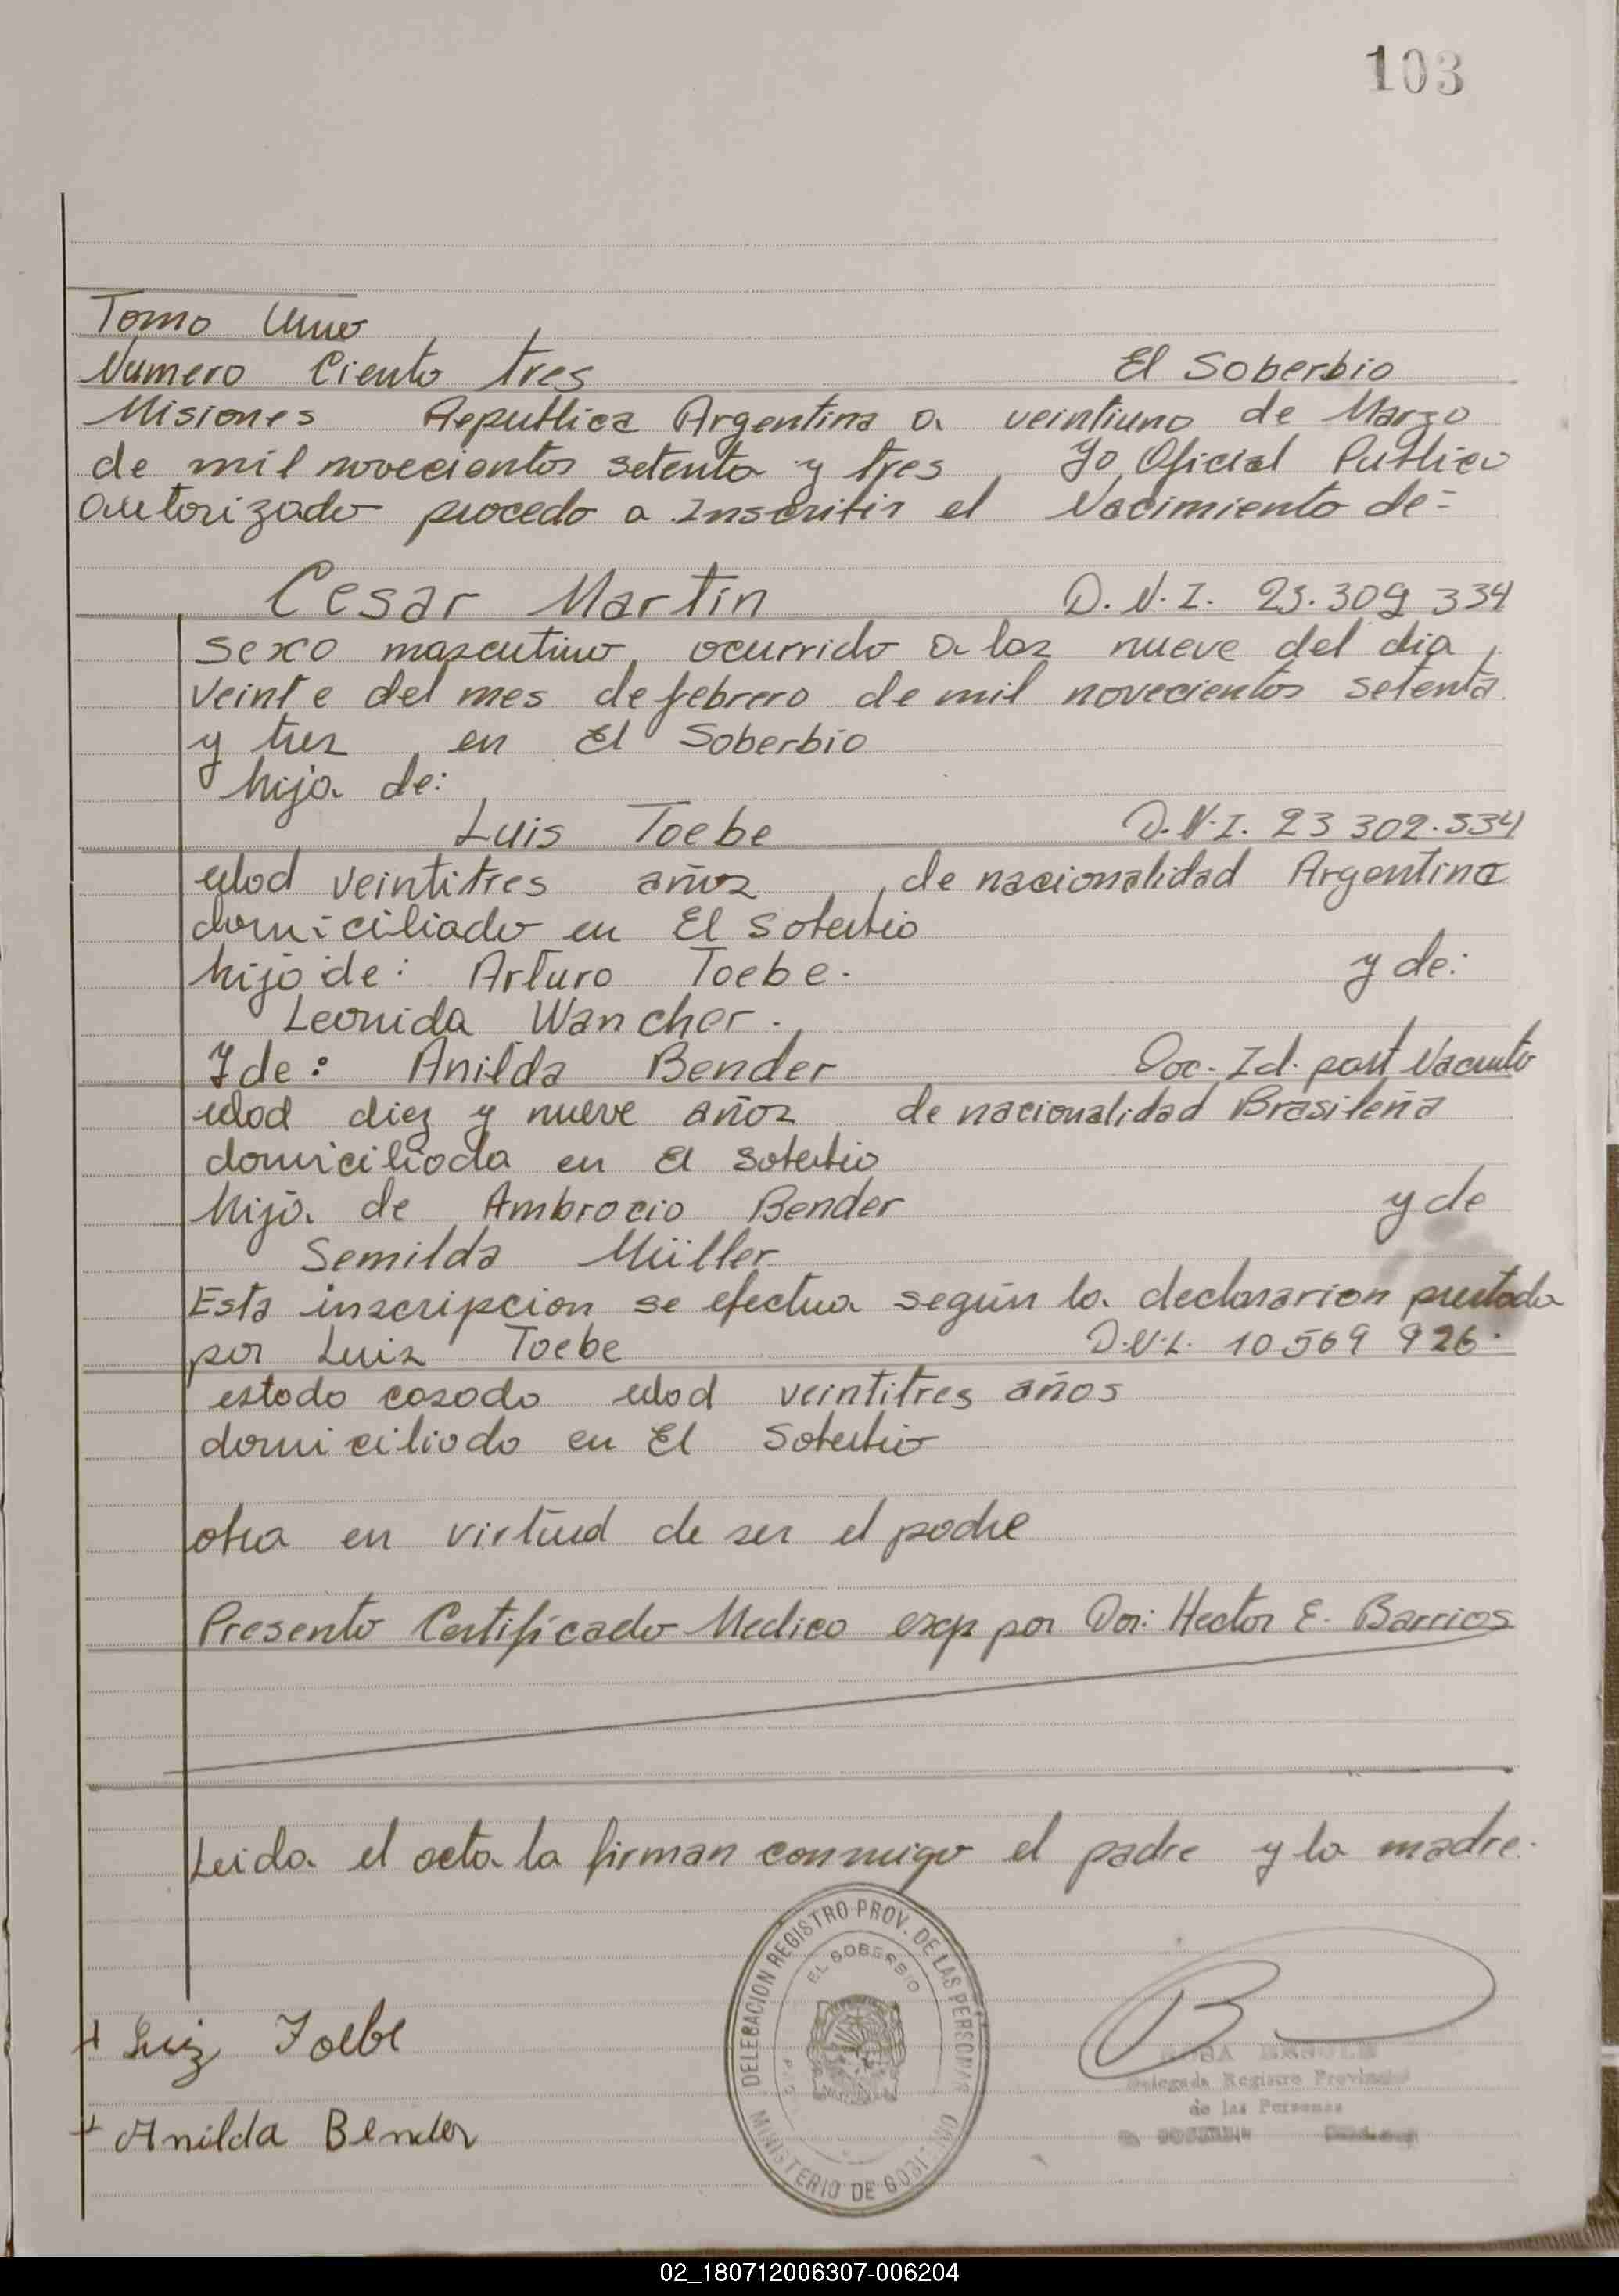 103
Tomo Uno
Numero Ciento tres El Soberbio
Misiones Republica Argentina a veintiuno de Marzo
de mil novecientos setenta y tres, Yo, Oficial Publico
autorizado procedo a Inscribir el Nacimiento de:
Cesar Martin D.N.I. 23.309 334
sexo masculino, ocurrido a las nueve del dia,
veinte del mes de febrero de mil novecientos setenta
y tres, en El Soberbio
hijo de:
Luis Toebe D.N.I. 23 302.334
edad veintitres años, de nacionalidad Argentina
domiciliado en El Soberbio
hijo de: Arturo Toebe. y de:
Leonida Wancher.
Y de: Anilda Bender Doc. Id. part Nacmto
edad diez y nueve años de nacionalidad Brasileña
domiciliada en El Soberbio
hija de Ambrocio Bender y de
Semilda Müller
Esta inscripcion se efectua según la declararion prestada
por Luis Toebe D.N.I. 10 569 926.
estado casado edad veintitres años
domiciliado en El Soberbio
obra en virtud de ser el padre
Presento Certificado Medico exp por Dor: Hector E. Barrios
Leida el acta la firman conmigo el padre y la madre.
DELEGACION REGISTRO PROV. DE LAS PERSONAS
EL SOBERBIO
MINISTERIO DE GOBIERNO
+ Luiz Toebe
+ Anilda Bender
Delegada Registro Provincial
de las Personas
02_180712006307-006204